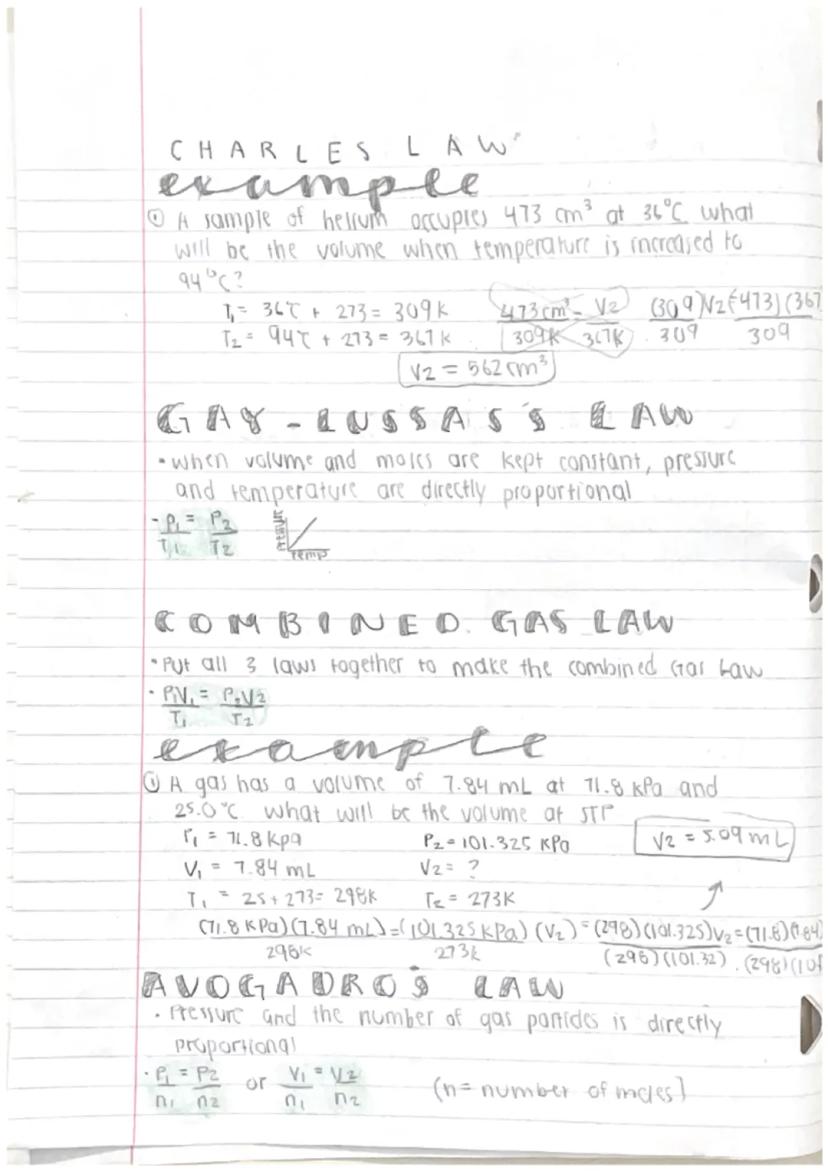 CHARLES LAW
example
① A sample of helium occupies 473 cm³ at 36°C what
will be the volume when temperature is increased to
94°C?
T₁ = 36°C + 273 = 309K
T₂ = 94°C + 273 = 367K
473cm³ = V2
309K 367K
(309)V2 = (473)(367
309 309
V2 = 562 cm³
GAY-LUSSAS'S LAW
• when volume and moles are kept constant, pressure
and temperature are directly proportional
· P₁ = P₂
T₁ T₂
Pressure
Temp
COMBINED GAS LAW
• Put all 3 laws together to make the combined Gas Law
· P₁V₁ = P₂V2
T₁ T₂
example
① A gas has a volume of 7.84 mL at 71.8 kPa and
25.0°C. what will be the volume at STP
P₁ = 71.8 kpa P₂ = 101.325 KPa
V₂ = 5.09 mL
V₁ = 7.84 mL V₂ = ?
T₁ = 25 + 273 = 298K T₂ = 273K
(71.8 KPa)(7.84 mL) = (101.325 kPa) (V₂) = (298)(101.325)V₂ = (71.8)(7.84)
298K 273K (298)(101.32) . (298)(101
AVOGADRO'S LAW
• Pressure and the number of gas particles is directly
proportional
· P₁ = P₂ or V₁ = V₂ (n = number of moles)
n₁ n₂ n₁ n₂